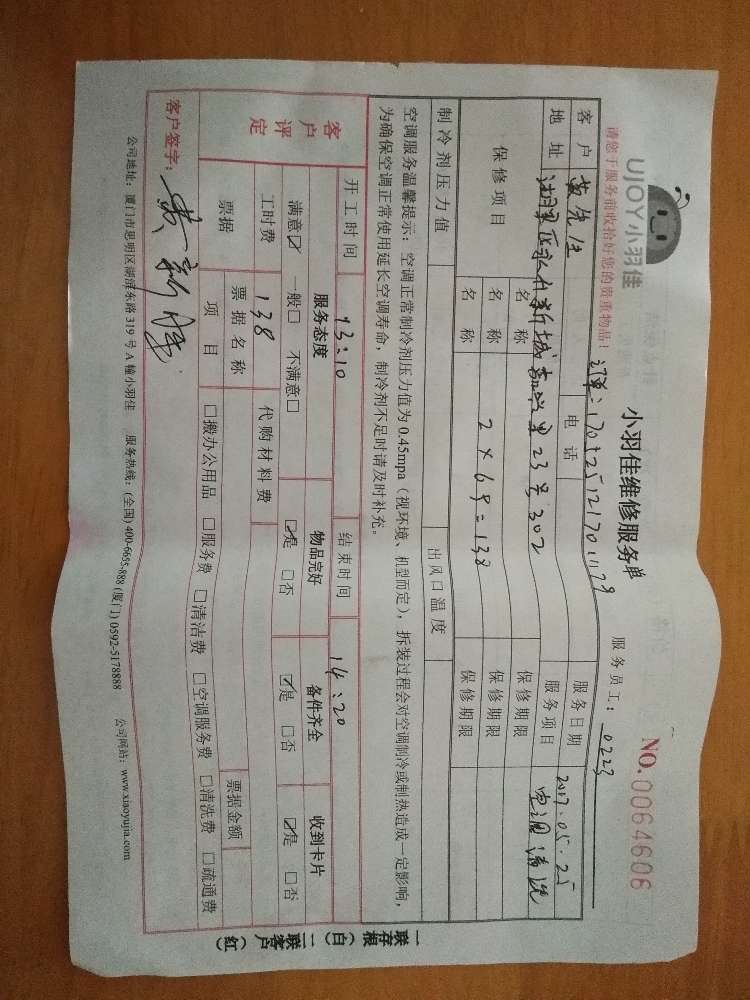 UJOY小羽佳
小羽佳维修服务单
NO.0064606
请您于服务前收拾好您的贵重物品！
服务员工：0223
客户 黄先生 电话 服务日期 2017.05.25
地址 新城 23号302 服务项目 空调清洗
保修项目 名称 保修期限
名称 2×69=138 保修期限
名称 保修期限
制冷剂压力值 出风口温度
空调服务温馨提示：空调正常制冷剂压力值为 0.45mpa（视环境、机型而定），拆装过程会对空调制冷或制热造成一定影响，
为确保空调正常使用延长空调寿命，制冷剂不足时请及时补充。
开工时间 13:10 结束时间 14:20
客户评定
服务态度 物品完好 备件齐全 收到卡片
满意☑ 一般□ 不满意□ ☑是 □否 ☑是 □否 ☑是 □否
工时费 138 代购材料费
票据 票据名称 票据金额
项目 □搬办公用品 □服务费 □清洁费 □空调服务费 □清洗费 □疏通费
客户签字：
公司地址：厦门市思明区湖滨东路 319 号 A 幢小羽佳 服务热线：(全国) 400-6655-888 (厦门) 0592-5178888 公司网站：www.xiaoyujia.com
一联存根（白）二联客户（红）